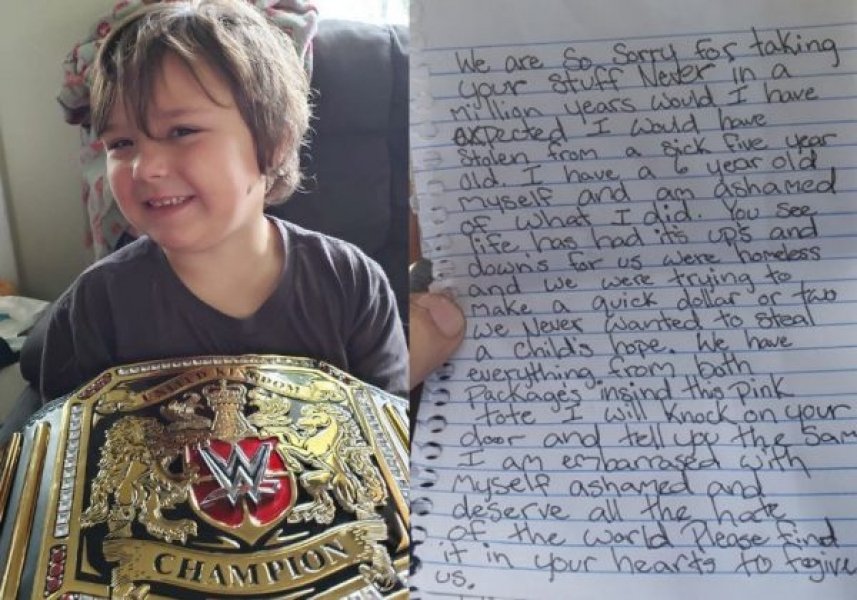 UNITED KINGDOM
W
CHAMPION
We are so sorry for taking
your stuff Never in a
million years would I have
expected I would have
stolen from a sick five year
old. I have a 6 year old
myself and am ashamed
of what I did. You see
life has had it's up's and
down's for us were homeless
and we were trying to
make a quick dollar or two
we Never wanted to steal
a child's hope. We have
everything from both
packages insind this pink
tote I will knock on your
door and tell you the sam
I am embarrased with
myself ashamed and
deserve all the hate
of the world Please find
it in your hearts to fogive
us.